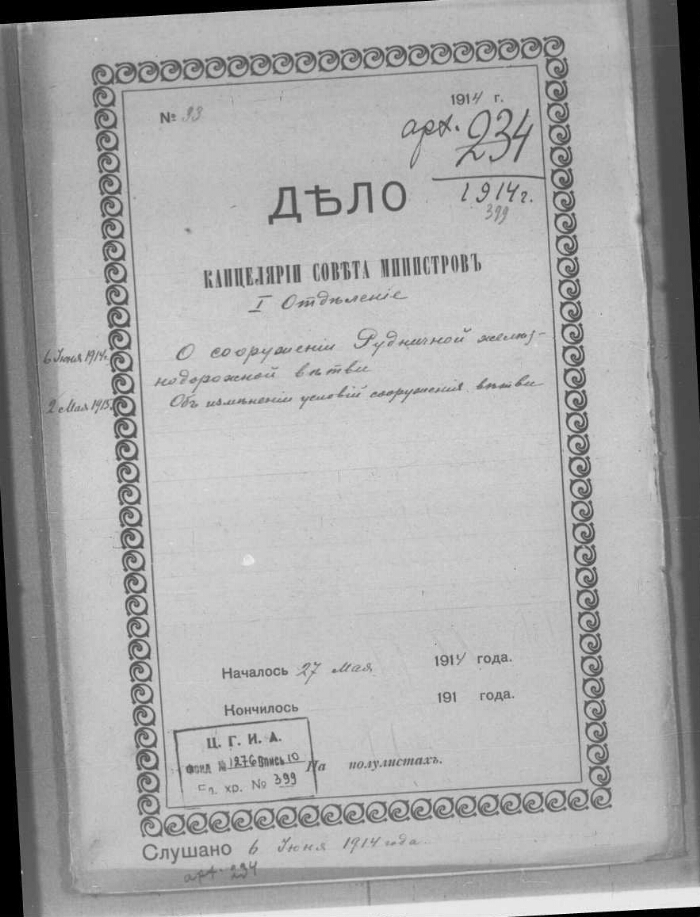 № 93
1914 г.
арх. 234
1914 г.
399
ДѢЛО
КАНЦЕЛЯРІИ СОВѢТА МИНИСТРОВЪ
I Отдѣленіе
6 Июня 1914г.
О сооруженіи Рудничной желѣз-
нодорожной вѣтви
2 Мая 1915г.
Объ измѣненіи условій сооруженія вѣтви
Началось 27 Мая 1914 года.
Кончилось 191 года.
Ц. Г. И. А.
Фонд № 1276 Опись 10
Ед. хр. № 399
На полулистахъ.
Слушано 6 Іюня 1914 года
арх. 234